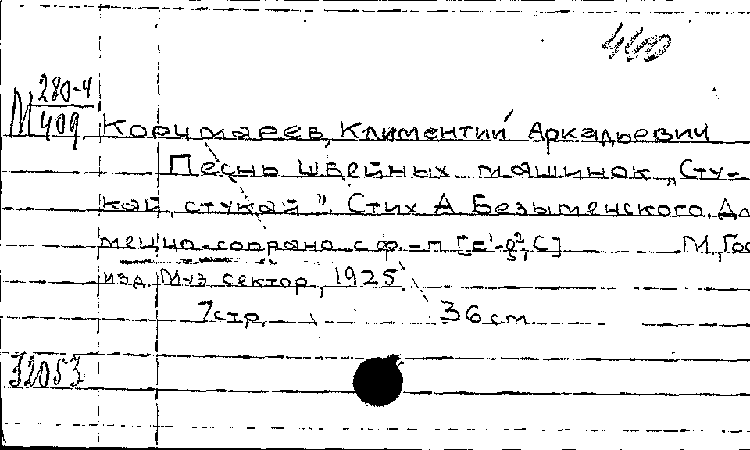 М 280-4
409
Корчмарев, Климентий Аркадьевич
Песнь швейных машинок „Сту-
кай, стукай". Стих А Безыменского. Дл
меццо-сопрано с ф.-п [e¹-g², C] М, Гос
изд. Муз сектор, 1925.
7стр. 36 см
32053